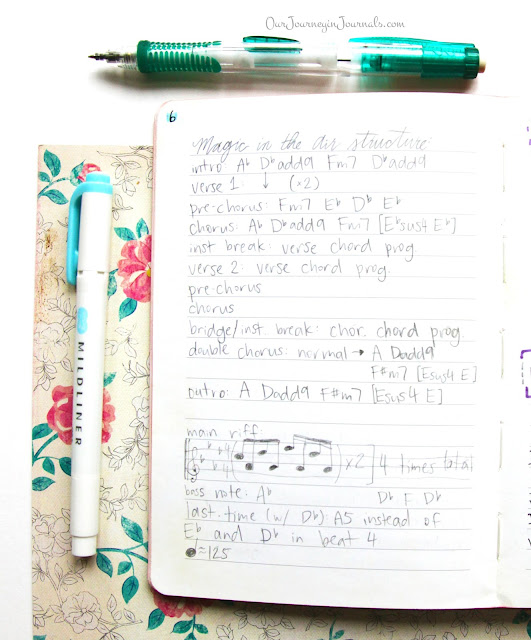 OurJourneyinJournals.com
6
Magic in the air structure
intro: A♭ D♭add9 Fm7 D♭add9
verse 1: ↓ (×2)
pre-chorus: Fm7 E♭ D♭ E♭
chorus: A♭ D♭add9 Fm7 [E♭sus4 E♭]
inst break: verse chord prog
verse 2: verse chord prog.
pre-chorus
chorus
bridge/inst. break: chor. chord prog.
double chorus: normal → A Dadd9
F#m7 [Esus4 E]
outro: A Dadd9 F#m7 [Esus4 E]
main riff:
4 4 ×2 4 times total
bass note: A♭ D♭ F D♭
last time (w/ D♭): A5 instead of
E♭ and D♭ in beat 4
≈125
MILDLINER